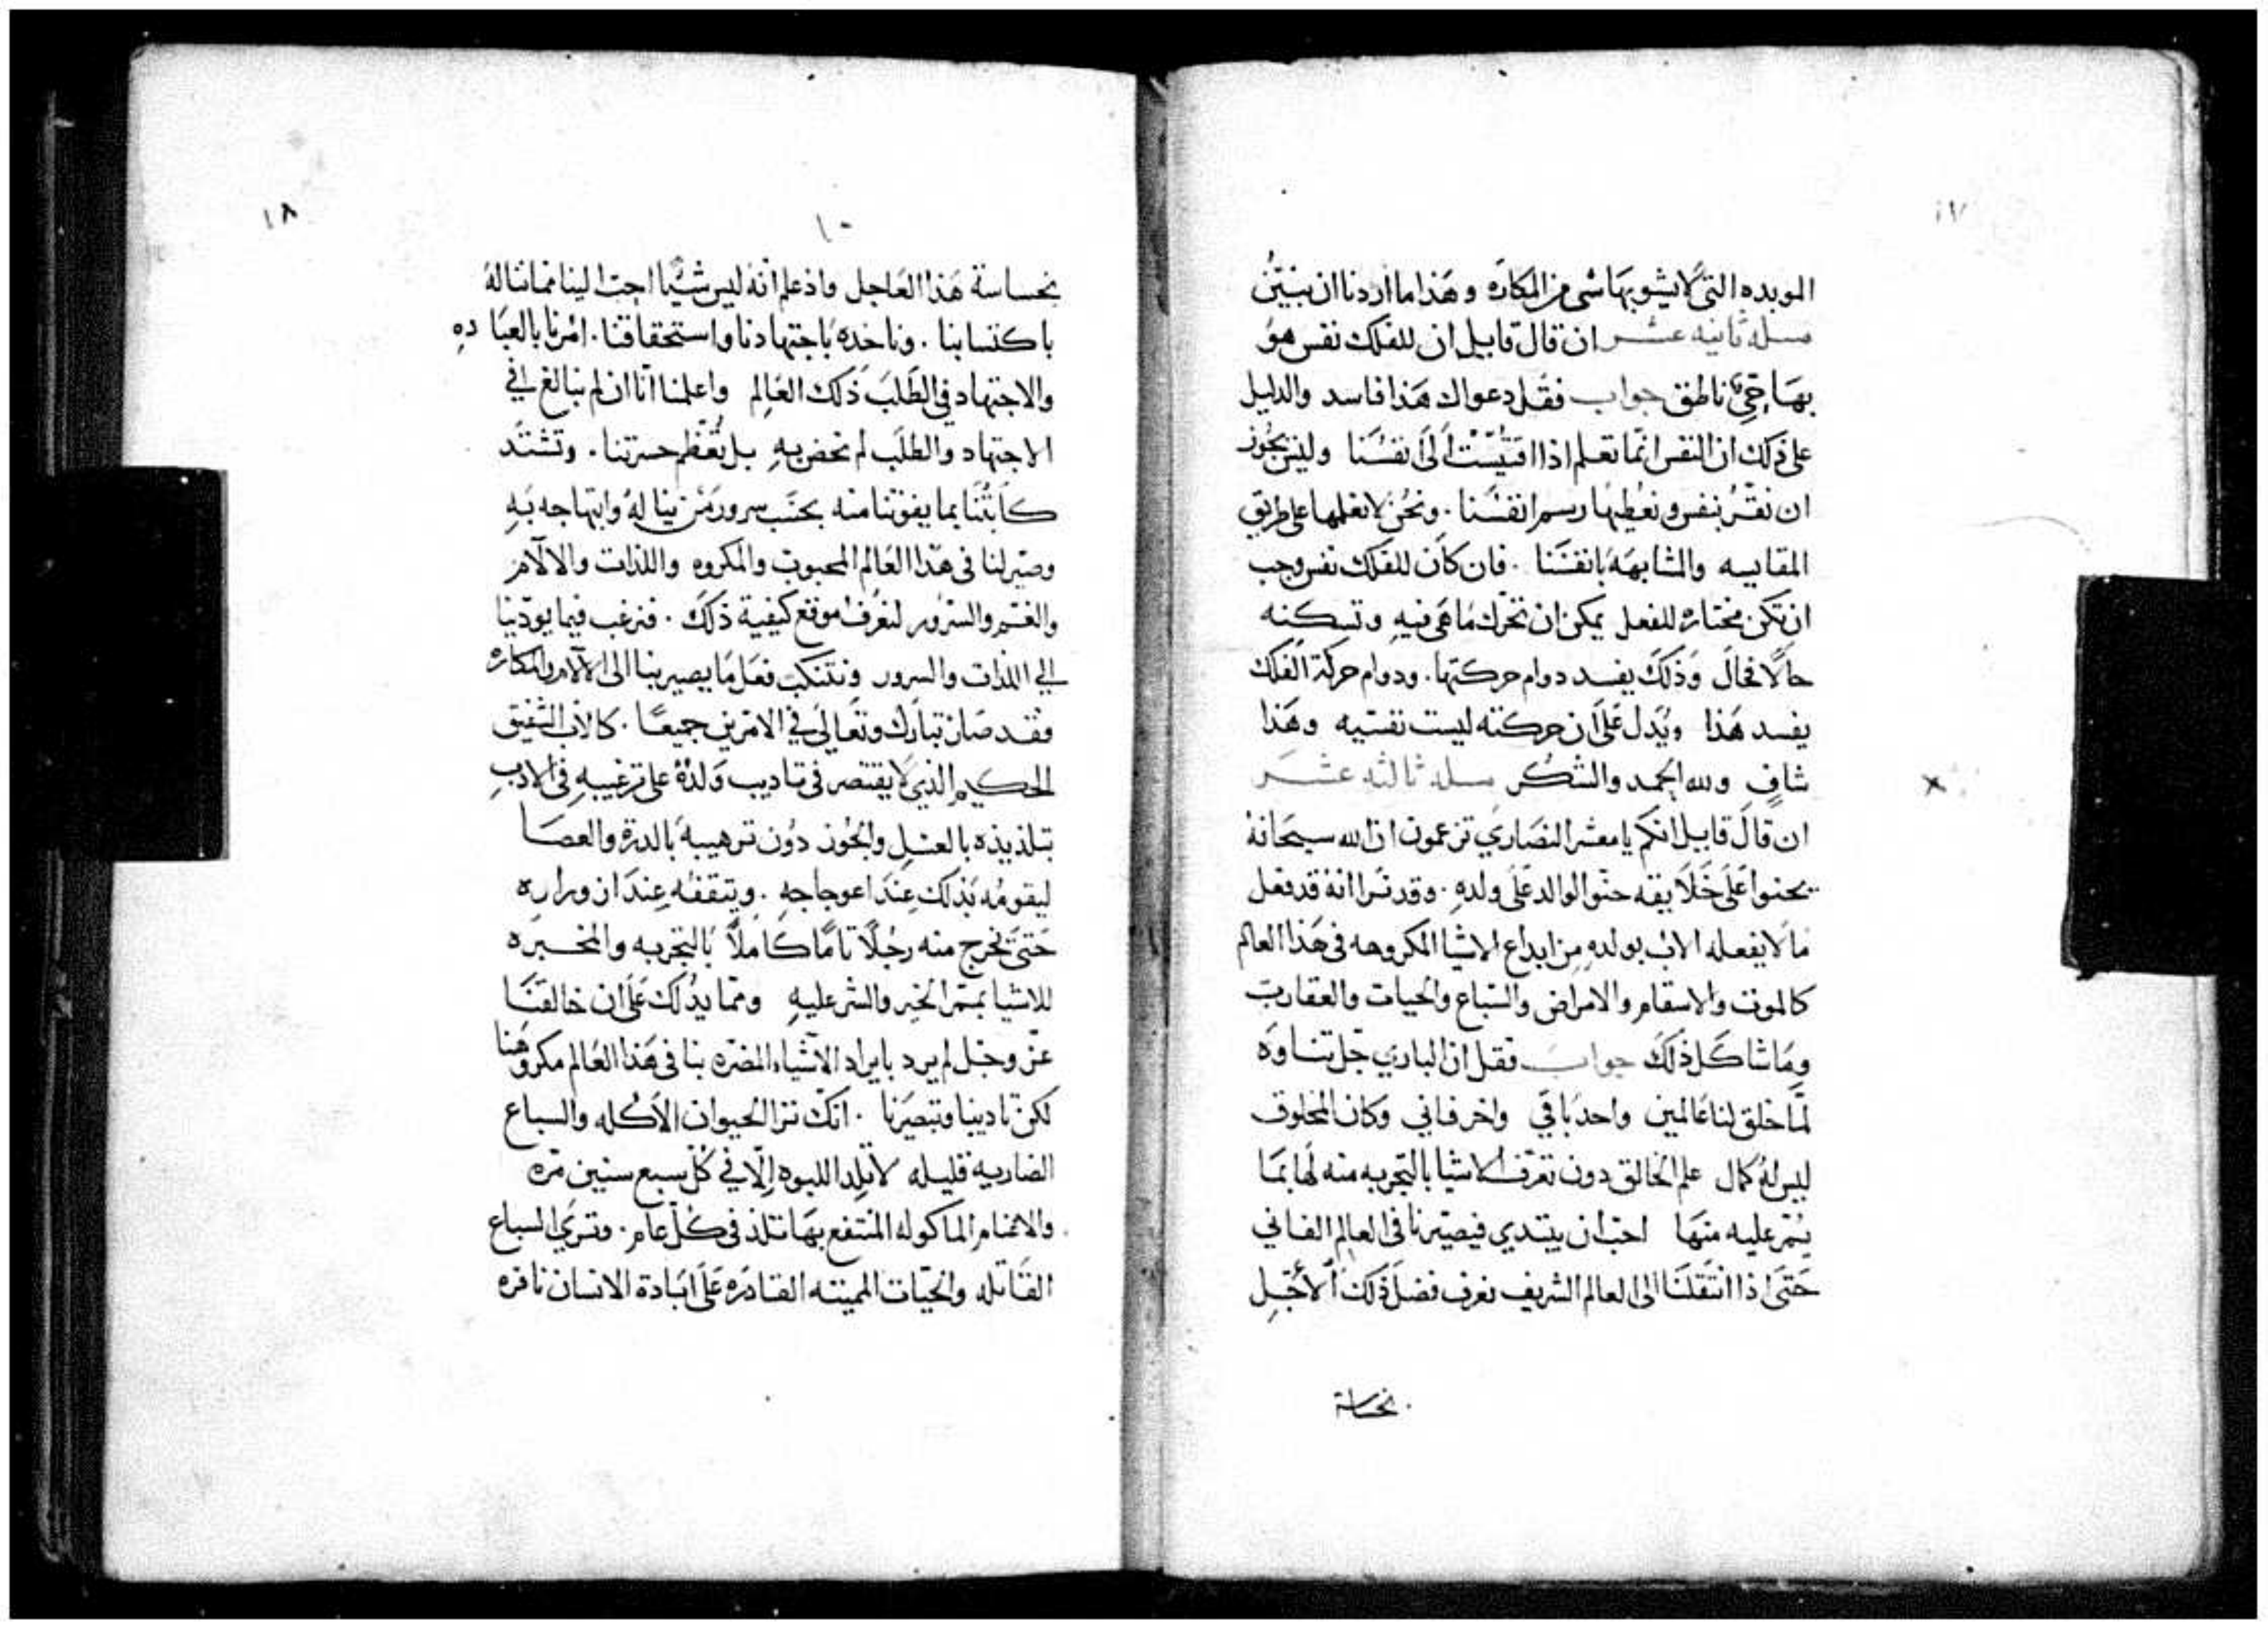 ١٧
الموبده التي لا يشوبها شي من المكاره وهذا ما اردنا ان نبيّن
مسله ثانيه عشر ان قال قايل ان للفلك نفس هو
بها حيّ ناطق جواب فقل دعواك هذا فاسد والدليل
على ذلك ان النفس انما تعلم اذا اقتيست الى انفسنا وليس يجوز
ان نقرّ بنفس ونعطيها رسم انفسنا . ونحن لا نعلمها على طريق
المقايسه والمشابهه بانفسنا . فان كان للفلك نفس وجب
ان تكن مختاره للفعل يمكن ان تحرّك ما هي فيه وتسكنه
حالًا فحال وذلك يفسد دوام حركتها . ودوام حركة الفلك
يفسد هذا ويدل على ان حركته ليست نفسيه وهذا
شافٍ ولله الحمد والشكر مسله ثالثه عشر
ان قال قايل انكم يا معشر النصاري تزعمون ان الله سبحانه
يحنوا على خلايقه حنو الوالد على ولده . وقد نرا انه قد فعل
ما لا يفعله الاب بولده من ابداع الاشيا المكروهه في هذا العالم
كالموت والاسقام والامراض والسباع والحيات والعقارب
وما شاكل ذلك جواب فقل ان الباري جل تناوه
لمّا خلق لنا عالمين واحد باقي واخر فاني وكان المخلوق
ليس له كمال علم الخالق دون تعرّف الاشيا بالتجربه منه لها بما
يُمّر عليه منها احب ان يبتدي فيصيّرنا في العالم الفاني
حتى اذا انتقلنا الى العالم الشريف نعرف فضل ذلك الأجل
بخساسة
١٨
١٠
بخساسة هذا العاجل واذ علم انه ليس شيًا احبّ الينا مما نناله
باكتسابنا . وناخده باجتهادنا واستحقاقنا . امرنا بالعباده
والاجتهاد في الطلب ذلك العالم واعلمنا انّا ان لم نبالغ في
الاجتهاد والطلب لم نحض به بل تُعظم حسرتنا . وتشتد
كابتُنا بما يفوتنا منه بحسب سرور من يناله وابتهاجه به
وصيّر لنا في هذا العالم المحبوب والمكروه واللذات والالام
والغم والسرور لنعرف موقع كيفية ذلك . فنرغب فيما يودّينا
الي اللذات والسرور ونتنكب فعل ما يصير بنا الى الالام والمكاره
فقد صار تبارك وتعالى في الامرين جميعًا . كالاب الشفيق
الحكيم الذي لا يقتصر في تاديب ولده على ترغيبه في الادب
بتلذيذه بالعسل والجوز دون ترهيبه بالدرة والعصا
ليقومه بذلك عند اعوجاجه . ويتقفه عند ازوراره
حتى تخرج منه رجلًا تامًا كاملًا بالتجربه والمخبره
للاشيا بممّر الخير والشر عليه ومما يدُلك على ان خالقنا
عز وجل لم يرد بايراد الاشياء المضره بنا في هذا العالم مكروهنا
لكن تاديبنا وتبصيرنا . انك ترا الحيوان الاكله والسباع
الضاريه قليله لا تلد اللبوه إلّا في كل سبع سنين مره
والاغنام الماكوله المنتفع بها تلد في كل عام . وترى السباع
القاتله والحيّات المميته القادره على ابادة الانسان نافره